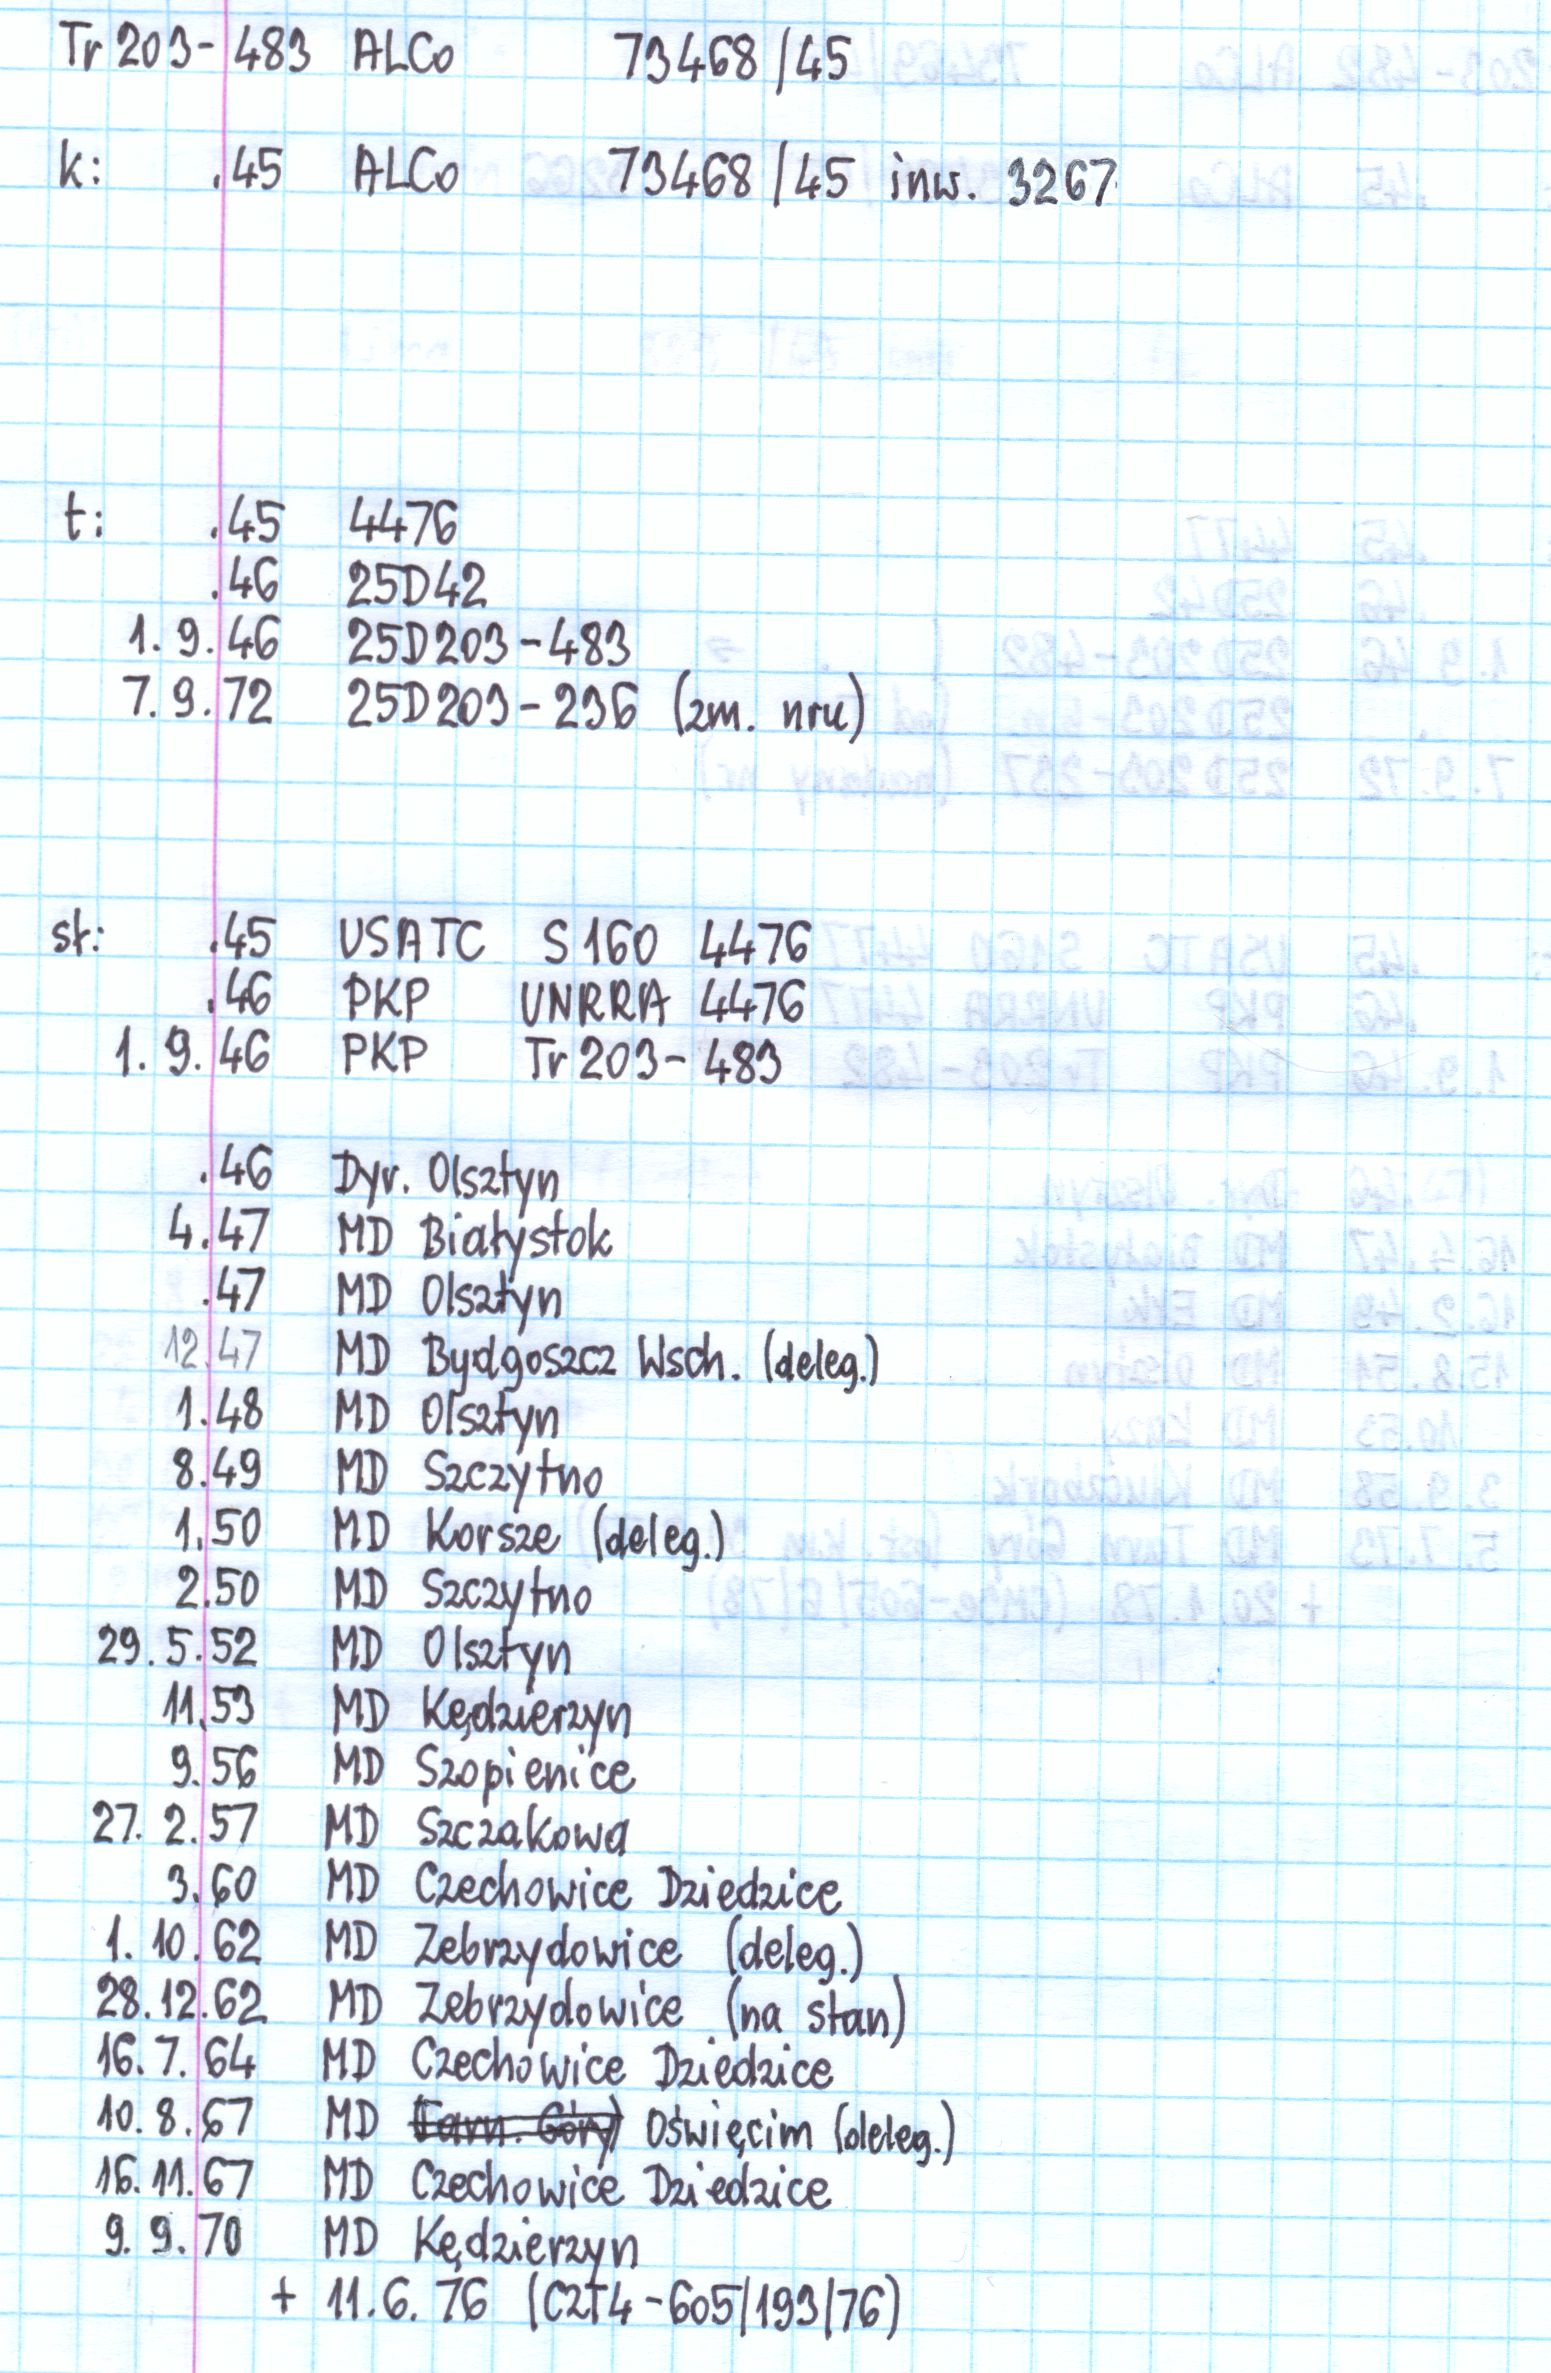 Tr 203-483 ALCo 73468/45
k: .45 ALCo 73468/45 inw. 3267
t: .45 4476
.46 25D42
1.9.46 25D203-483
7.9.72 25D203-236 (zm. nru)
st: .45 USATC S160 4476
.46 PKP UNRRA 4476
1.9.46 PKP Tr203-483
.46 Dyr. Olsztyn
4.47 MD Białystok
.47 MD Olsztyn
12.47 MD Bydgoszcz Wsch. (deleg.)
1.48 MD Olsztyn
8.49 MD Szczytno
1.50 MD Korsze (deleg.)
2.50 MD Szczytno
29.5.52 MD Olsztyn
11.53 MD Kędzierzyn
9.56 MD Szopienice
27.2.57 MD Szczakowa
3.60 MD Czechowice Dziedzice
1.10.62 MD Zebrzydowice (deleg.)
28.12.62 MD Zebrzydowice (na stan)
16.7.64 MD Czechowice Dziedzice
10.8.67 MD Tarn. Góry Oświęcim (deleg.)
16.11.67 MD Czechowice Dziedzice
9.9.70 MD Kędzierzyn
+ 11.6.76 (CZT4-605/193/76)